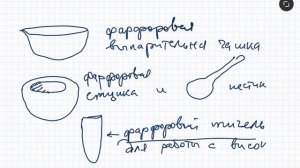 фарфоровая
выпарительна чашка
фарфоровая
ступка и пестик
фарфоровый тигель
для работы с висок